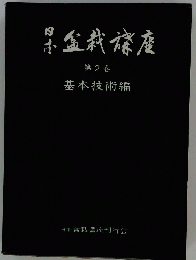 日本盆栽講座
第2巻
基本技術編